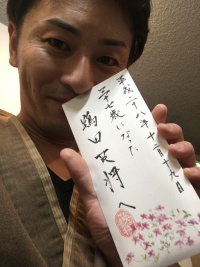 平成二八年十二月十九日
三十七歳になった
田英将へ